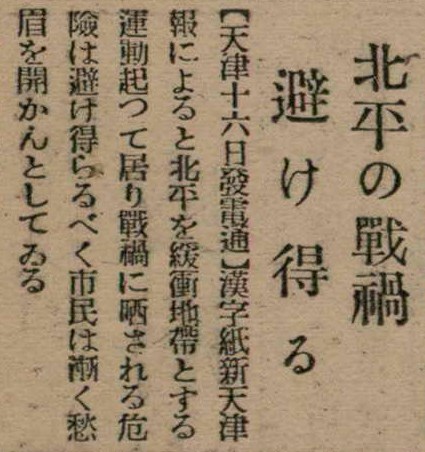 北平の戰禍
避け得る
【天津十六日發電通】漢字紙新天津
報によると北平を緩衝地帶とする
運動起つて居り戰禍に晒される危
險は避け得らるべく市民は漸く愁
眉を開かんとしてゐる